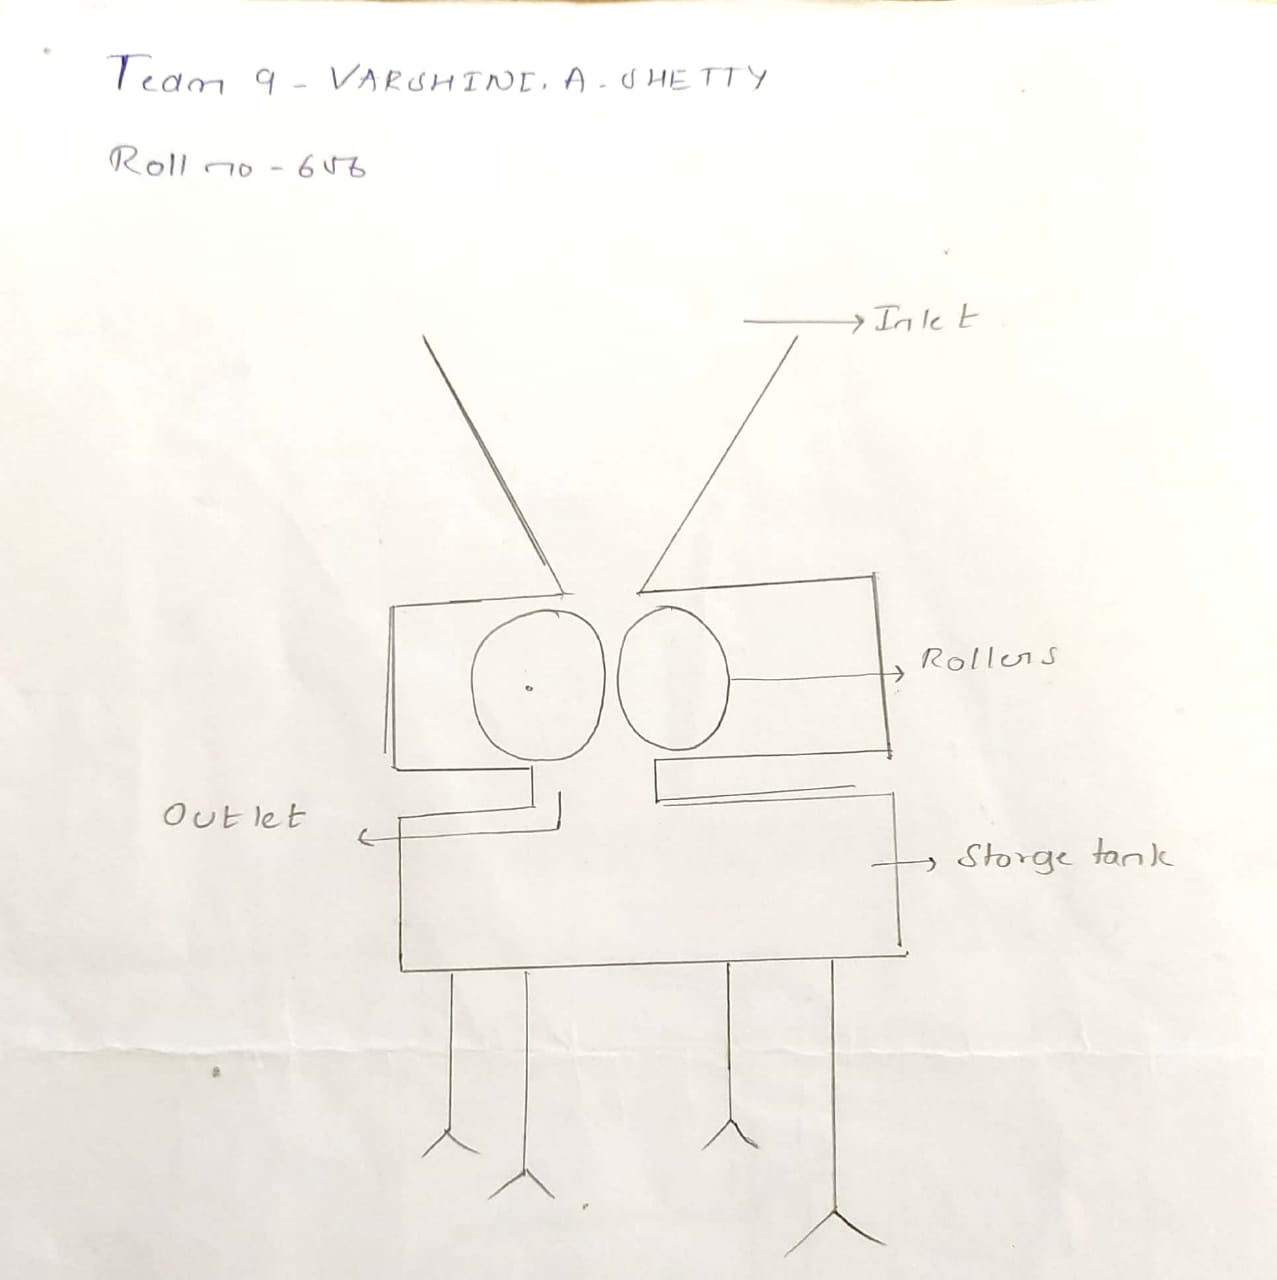 Team 9 - VARSHINI. A. SHETTY
Roll no - 656
Inlet
Rollers
Outlet
Storge tank